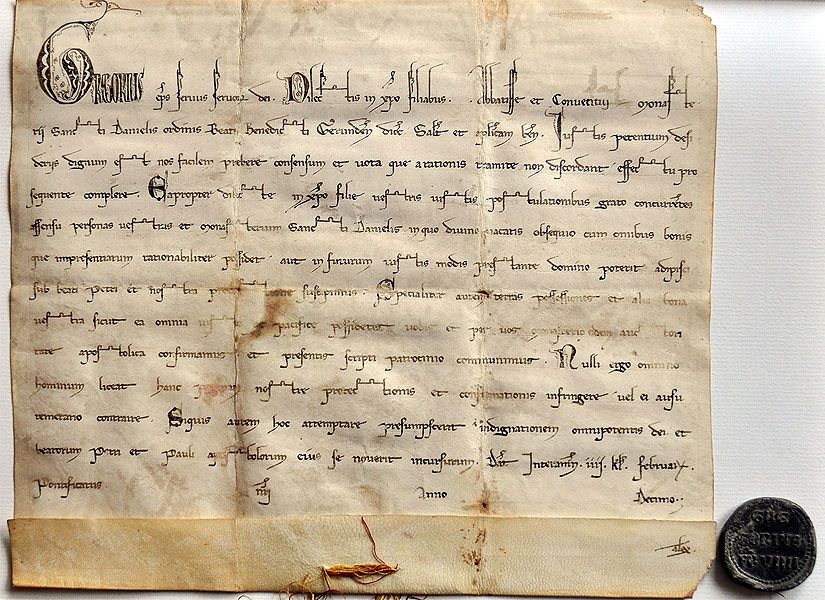 GREGORIUS eps servus servor dei. Dilectis in xpo filiabus. Abbatisse et Conventui monaste
rii Sancti Danielis ordinis Beati Benedicti Gerunden dioc Salt et aplicam ben. Iustis petentium desi
deriis dignum est nos facilem prebere consensum et vota que a rationis tramite non discordant effectu pro
sequente complere. Eapropter dilecte in xpo filie vestris iustis postulationibus grato concurrentes
assensu personas vestras et monasterium Sancti Danielis in quo divino vacatis obsequio cum omnibus bonis
que impresentiarum rationabiliter possidet. aut in futurum iustis modis prestante domino poterit adipisci
sub beati Petri et nostra protectione suscipimus. Specialiter autem terras possessiones et alia bona
vestra sicut ea omnia iuste pacifice possidetis vobis et per vos monasterio eidem aucto
tate apostolica confirmamus et presentis scripti patrocinio communimus. Nulli ergo omnino
hominum liceat hanc paginam nostre protectionis et confirmationis infringere vel ei ausu
temerario contraire. Siquis autem hoc attemptare presumpserit indignationem omnipotentis dei et
beatorum Petri et Pauli apostolorum eius se noverit incursurum. Dat Interamn. iiii. kl. februar.
Pontificatus nri Anno Decimo.
GRE
GORIVS
PP VIIII